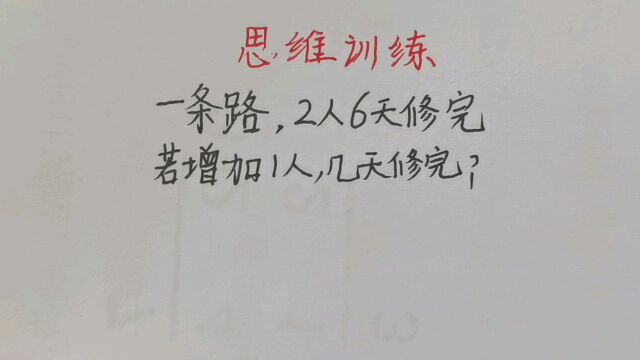 思维训练
一条路,2人6天修完
若增加1人,几天修完?